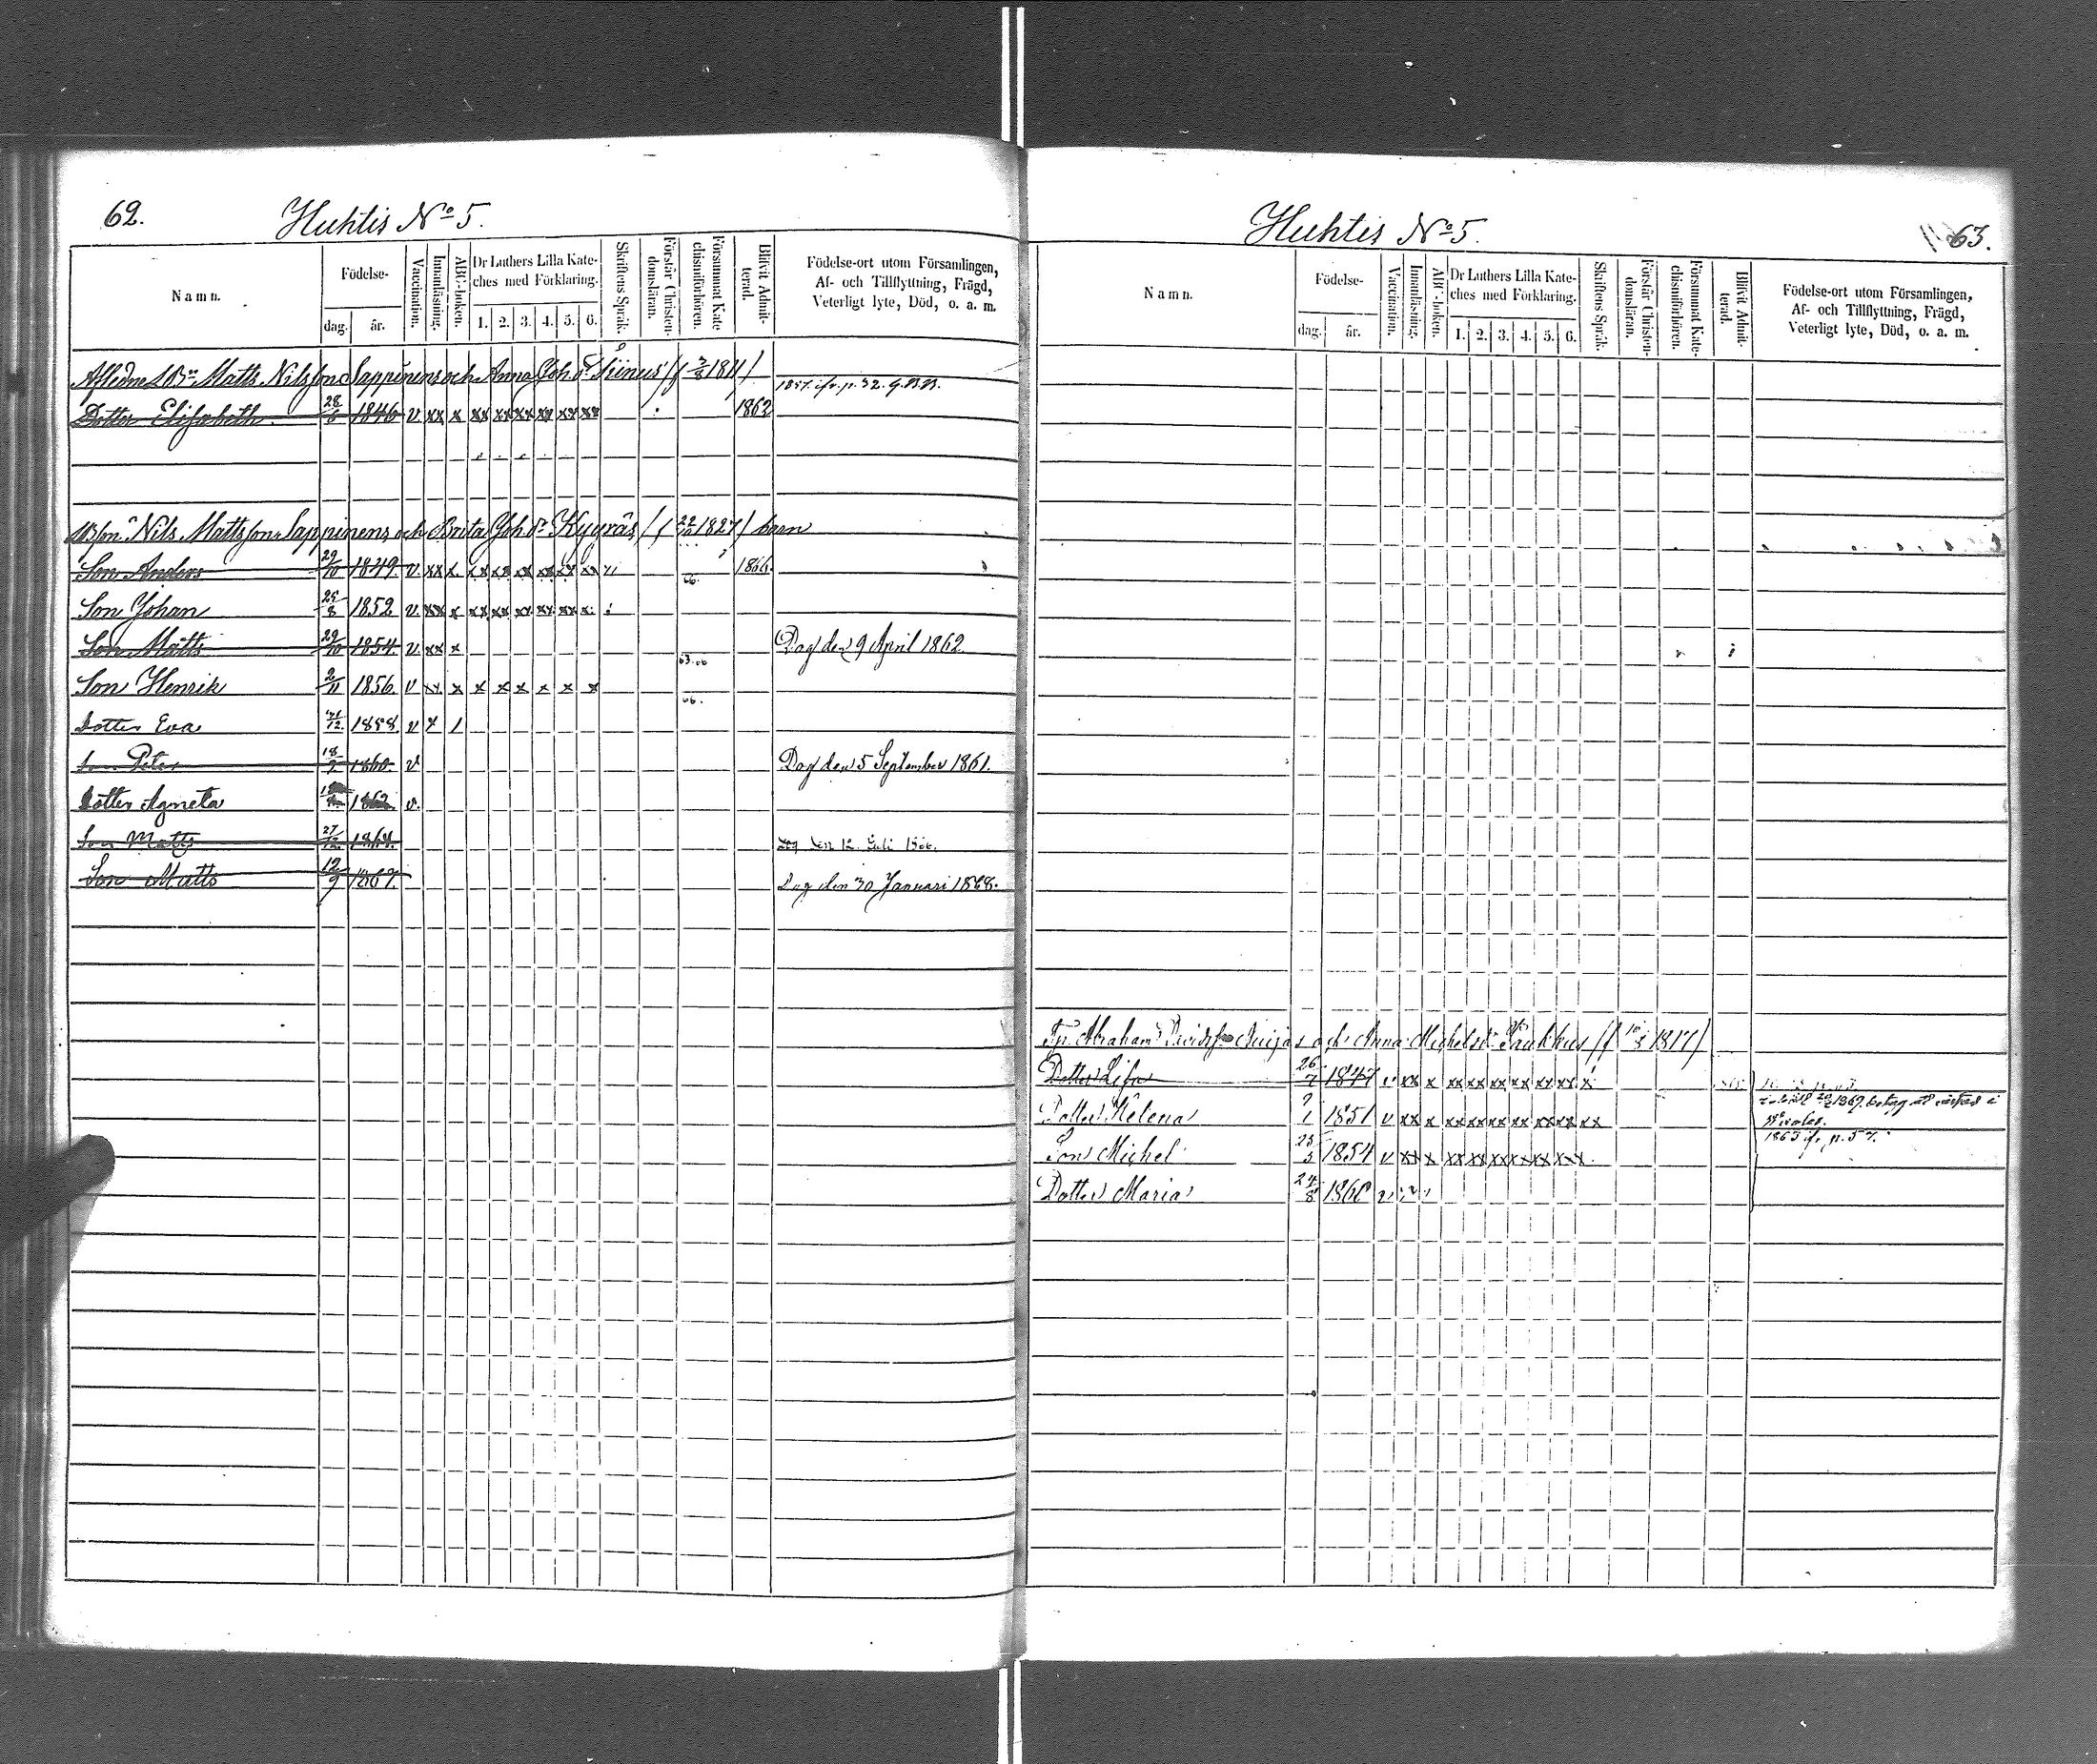 62.
Huhtis No 5.
Namn.
Födelse-
dag.
år.
Vaccination.
Innanläsning.
ABC-boken.
Dr Luthers Lilla Kate-
ches med Förklaring.
1. 2. 3. 4. 5. 6.
Skriftens Språk.
Förstår Christen-
domsläran.
Försummat Kate
chismiförhören.
Blifvit Admit-
terad.
Födelse-ort utom Församlingen,
Af- och Tillflyttning, Frägd,
Veterligt lyte, Död, o. a. m.
Afledne Matts Nilsson Lappinens och Anna Joh. dr Siinus (f 3/8 1811)
Dotter Elisabeth 28/6 1846 v xx x xx xx xx xx xx xx 1862
Nils Mattsson Lappinens och Brita Joh. dr Kyyräs (f 22/12 1827) barn
Son Anders 29/10 1849 v. xx x. xx xx xx xx xx xx 66. 1866.
Son Johan 25/8 1852 v. xx x xx xx xx xx xx x.
Son Matts 29/10 1854. v. xx x Dog den 9 April 1862.
Son Henrik 2/11 1856 v xx x x x x x x x 63. 66
Dotter Eva 1858. v x 1 66.
Son Peter 1860. v Dog den 5 September 1861.
Dotter Agneta 1862 v.
Son Matts 27/12 1864. Dog den 12 Juli 1866.
Son Matts 12/9 1867. Dog den 30 Januari 1868.
Huhtis No 5.
63.
Namn.
Födelse-
dag.
år.
Vaccination.
Innanläsning.
ABC-boken.
Dr Luthers Lilla Kate-
ches med Förklaring.
1. 2. 3. 4. 5. 6.
Skriftens Språk.
Förstår Christen-
domsläran.
Försummat Kate-
chismiförhören.
Blifvit Admit-
terad.
Födelse-ort utom Församlingen,
Af- och Tillflyttning, Frägd,
Veterligt lyte, Död, o. a. m.
Abraham och Anna Michelsdr Paukkus (f 1817)
Dotter Lisa 26/7 1847 v xx x xx xx xx xx xx x
Dotter Helena 1851 v xx x xx xx xx xx xx xx
Son Michel 1854 v xx x xx xx xx xx xx xx
Dotter Maria 24/8 1860 v